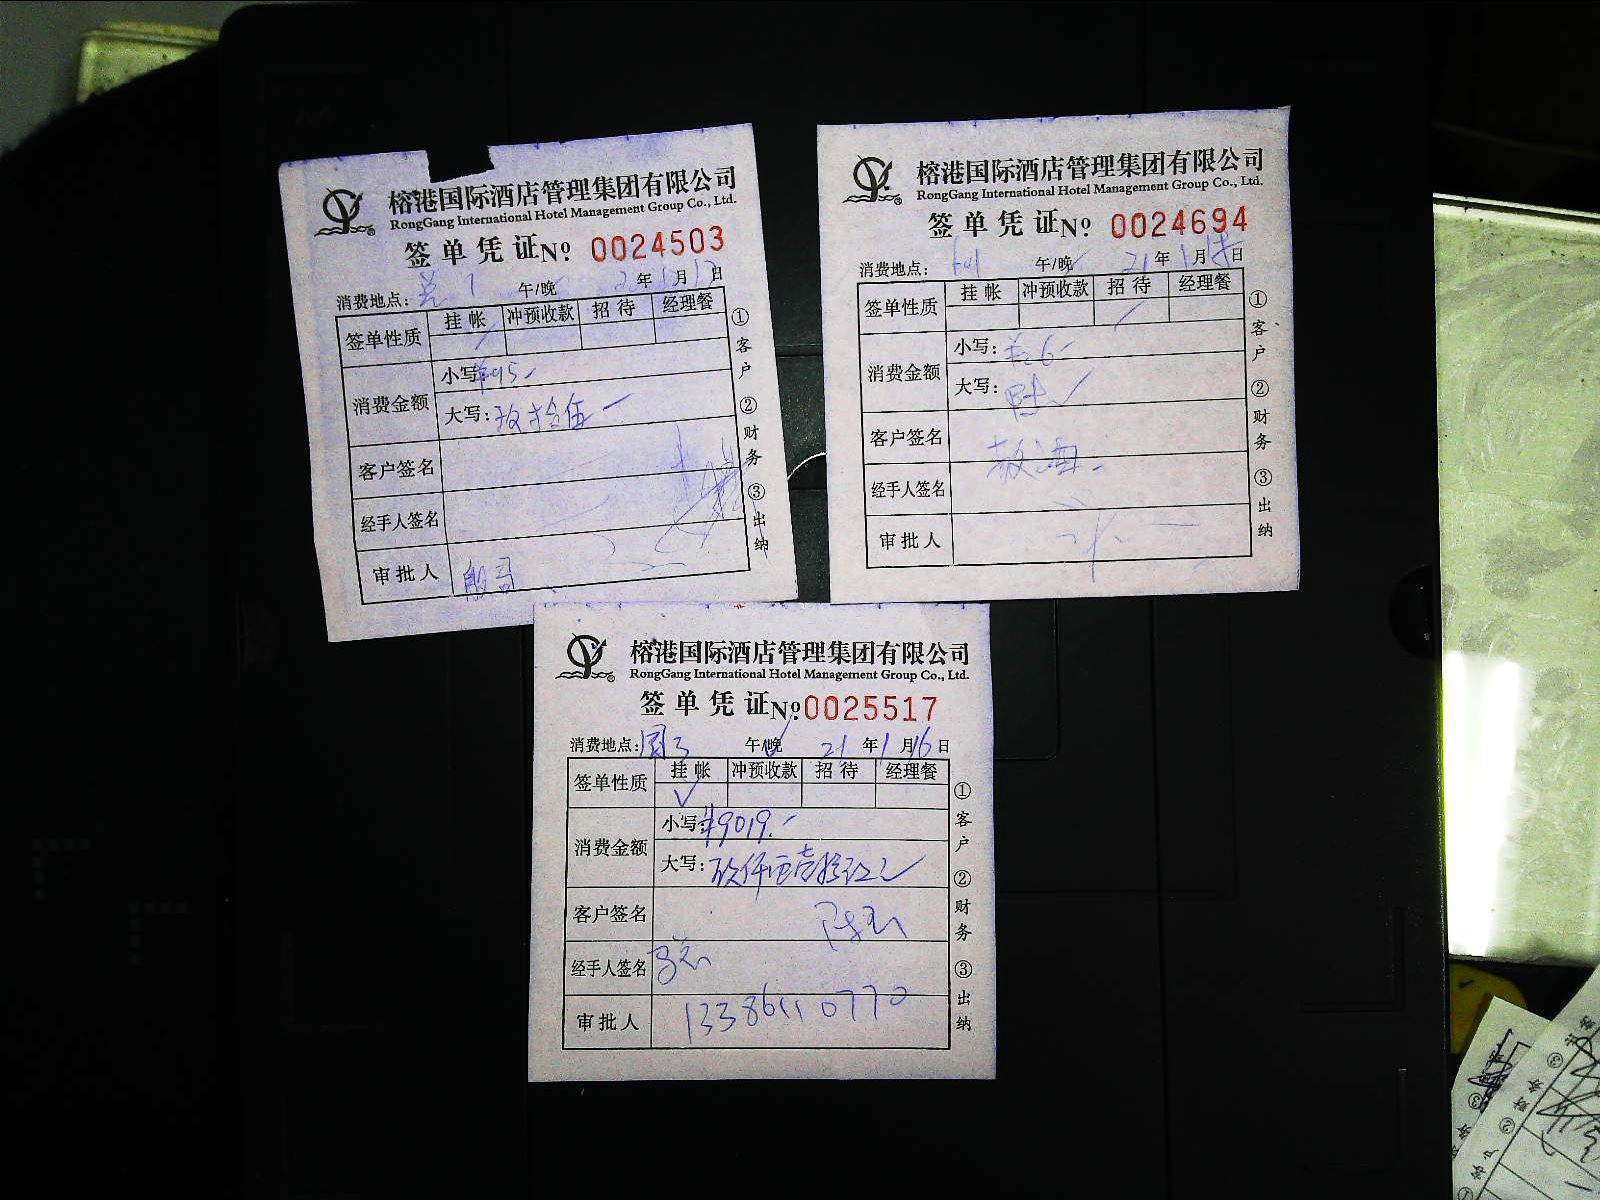 榕港国际酒店管理集团有限公司
RongGang International Hotel Management Group Co., Ltd.
签单凭证 Nº 0024503
消费地点: 午/晚 年1月12日
签单性质 挂帐 冲预收款 招待 经理餐
消费金额 小写: ¥95.-
大写: 玖拾伍
客户签名
经手人签名
审批人
①客户 ②财务 ③出纳
榕港国际酒店管理集团有限公司
RongGang International Hotel Management Group Co., Ltd.
签单凭证 Nº 0024694
消费地点: 601 午/晚 21年1月日
签单性质 挂帐 冲预收款 招待 经理餐
消费金额 小写:
大写:
客户签名
经手人签名
审批人
①客户 ②财务 ③出纳
榕港国际酒店管理集团有限公司
RongGang International Hotel Management Group Co., Ltd.
签单凭证 Nº 0025517
消费地点: 国3 午/晚 21年1月16日
签单性质 挂帐 冲预收款 招待 经理餐
✓
消费金额 小写: ¥9019.-
大写: 玖仟零壹拾玖元
客户签名
经手人签名
审批人 13386110770
①客户 ②财务 ③出纳